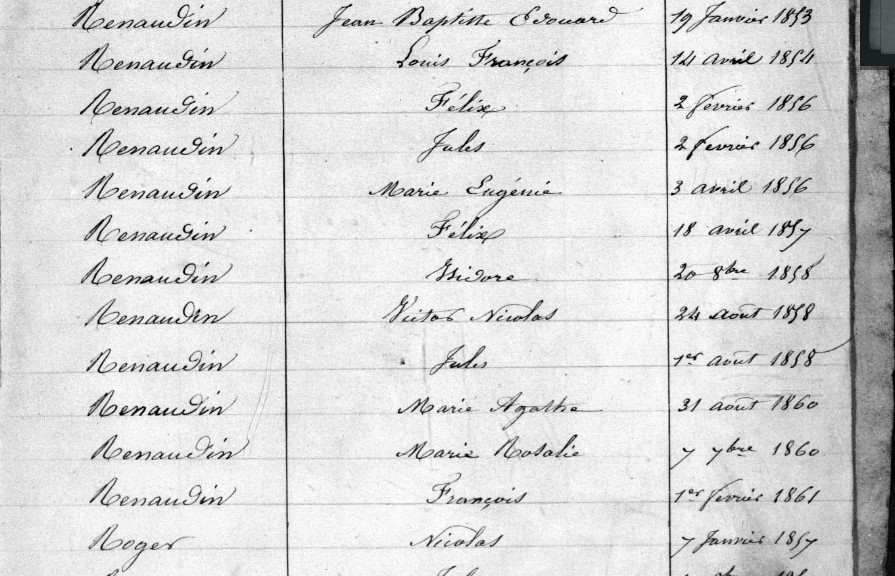 Renaudin Jean Baptiste Edouard 19 Janvier 1853
Renaudin Louis François 14 avril 1854
Renaudin Félix 2 fevrier 1856
Renaudin Jules 2 fevrier 1856
Renaudin Marie Eugénie 3 avril 1856
Renaudin Félix 18 avril 1857
Renaudin Isidore 20 8bre 1858
Renaudin Victor Nicolas 24 août 1858
Renaudin Jules 1er août 1858
Renaudin Marie Agathe 31 août 1860
Renaudin Marie Rosalie 7 7bre 1860
Renaudin François 1er fevrier 1861
Roger Nicolas 7 Janvier 1857